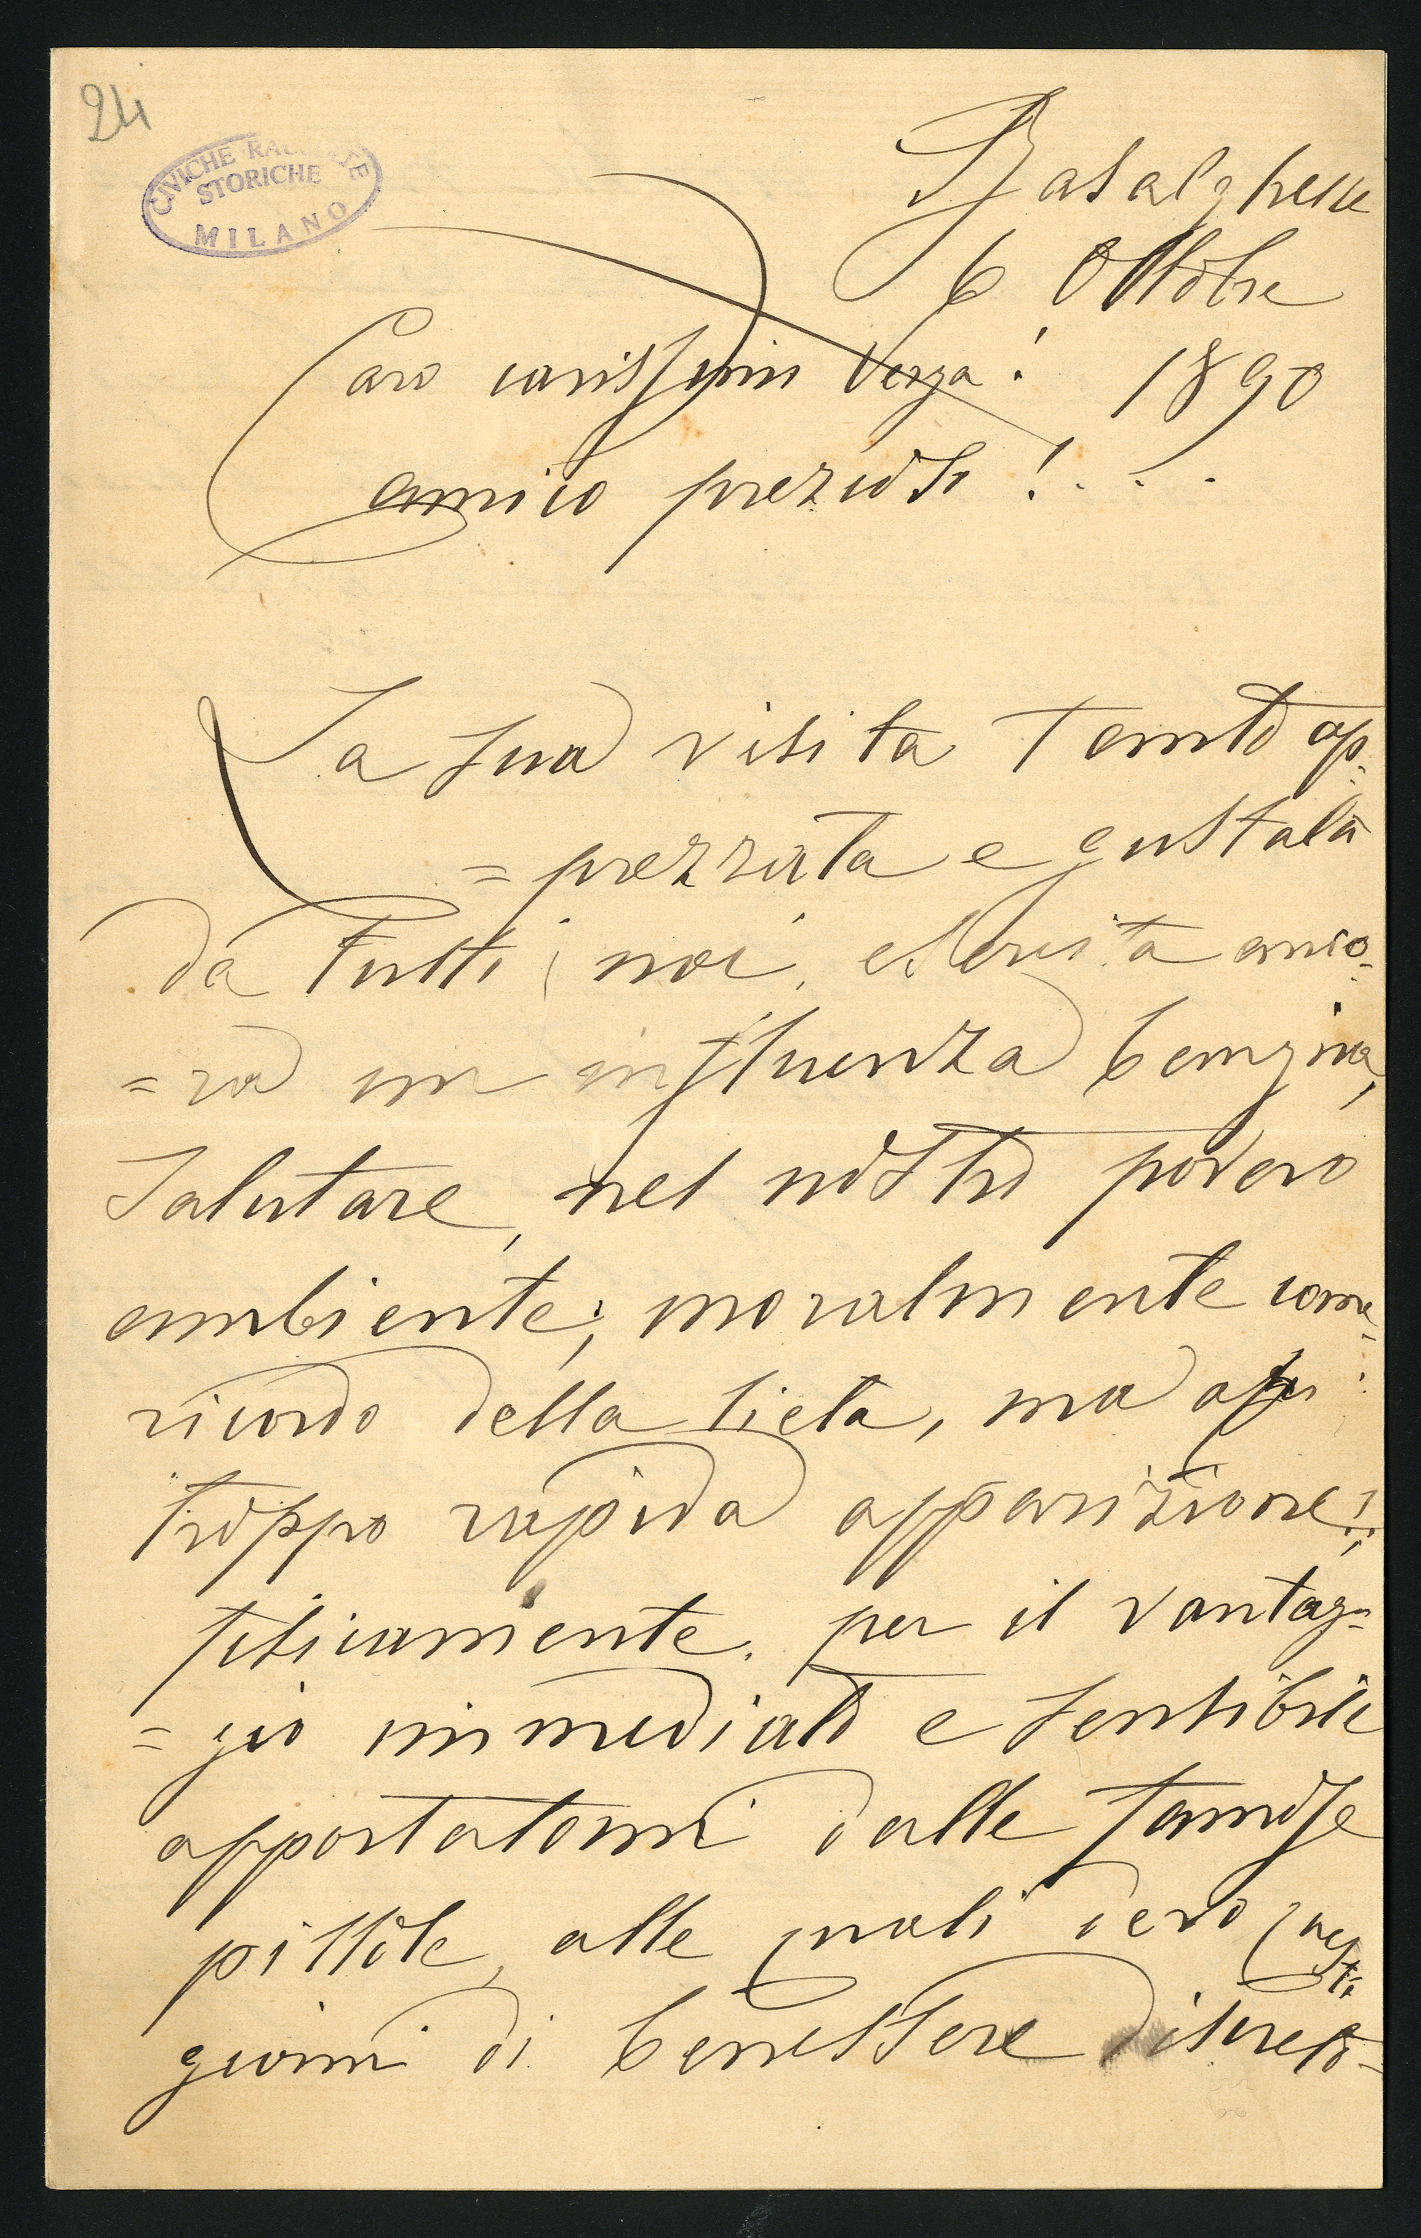 24
CIVICHE RACCOLTE
STORICHE
MILANO
Basalghelle
6 Ottobre
1890
Caro carissimo Verga!
amico prezioso! . . .
La sua visita tanto ap=
=prezzata e gustata
da tutti noi, esercita anco=
=ra un influenza benigna,
salutare, nel nostro povero
ambiente; moralmente come
ricordo della lieta, ma ahi:
troppo rapida apparizione!:
fisicamente. per il vantag=
=gio immediato e sensibile
apportatomi dalle famose
pillole, alle quali devo questi
giorni di benessere discreto=